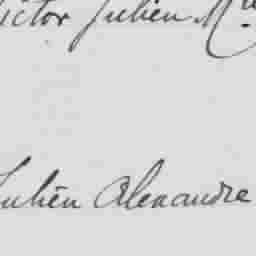 Victor Julien Mie
Julien Alexandre